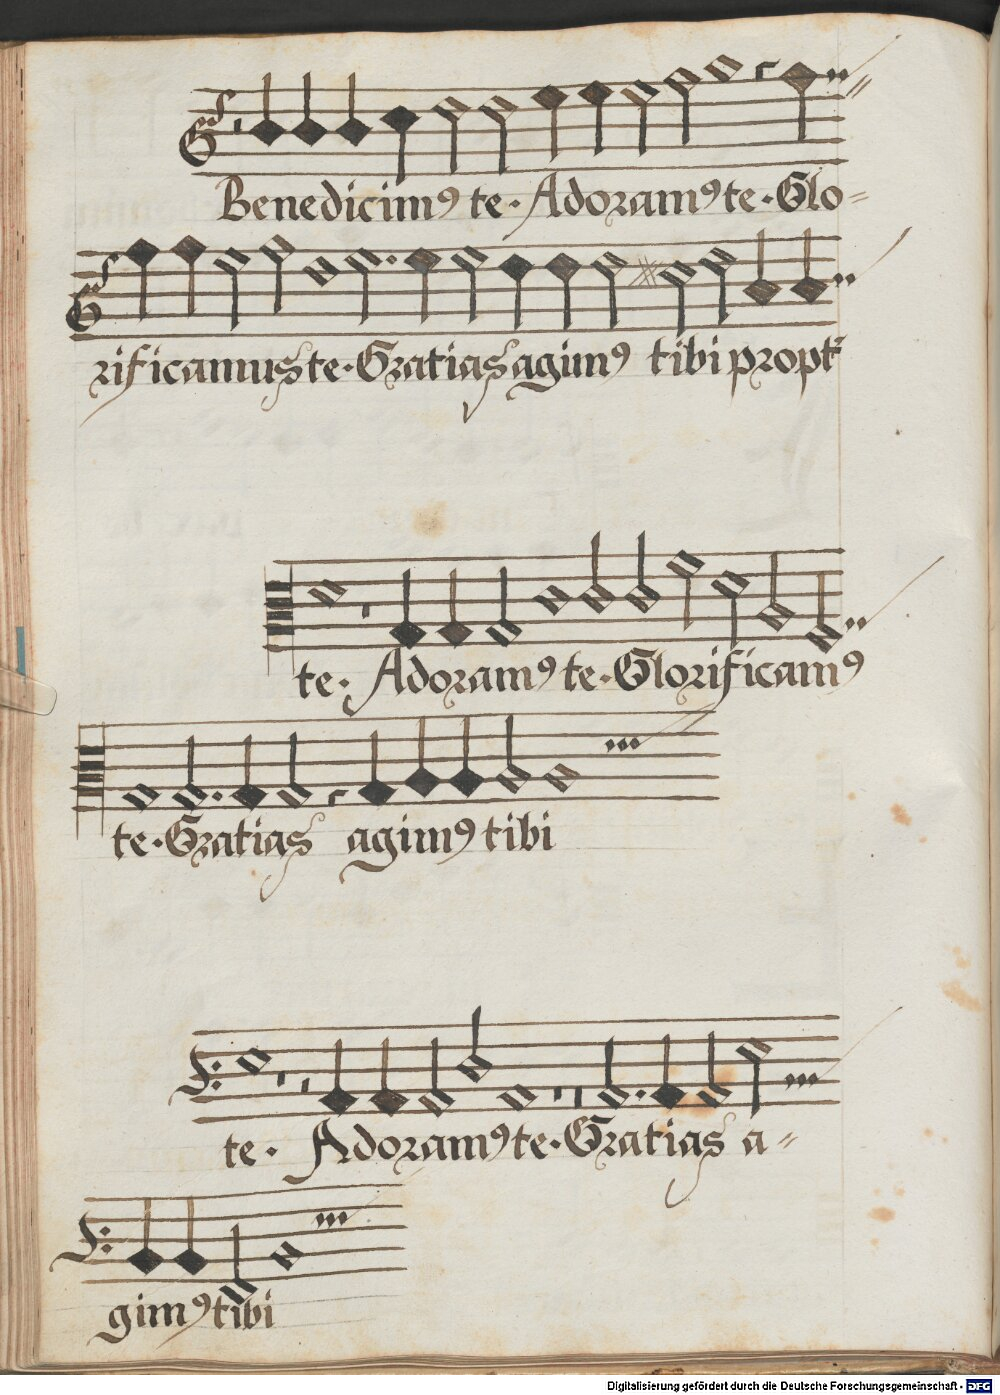 Benedicimꝰ te · Adoramꝰ te · Glo=
rificamus te · Gratias agimꝰ tibi propt
te · Adoramꝰ te · Glorificamꝰ
te · Gratias agimꝰ tibi
te · Adoramꝰ te · Gratias a=
gimꝰ tibi
Digitalisierung gefördert durch die Deutsche Forschungsgemeinschaft - DFG